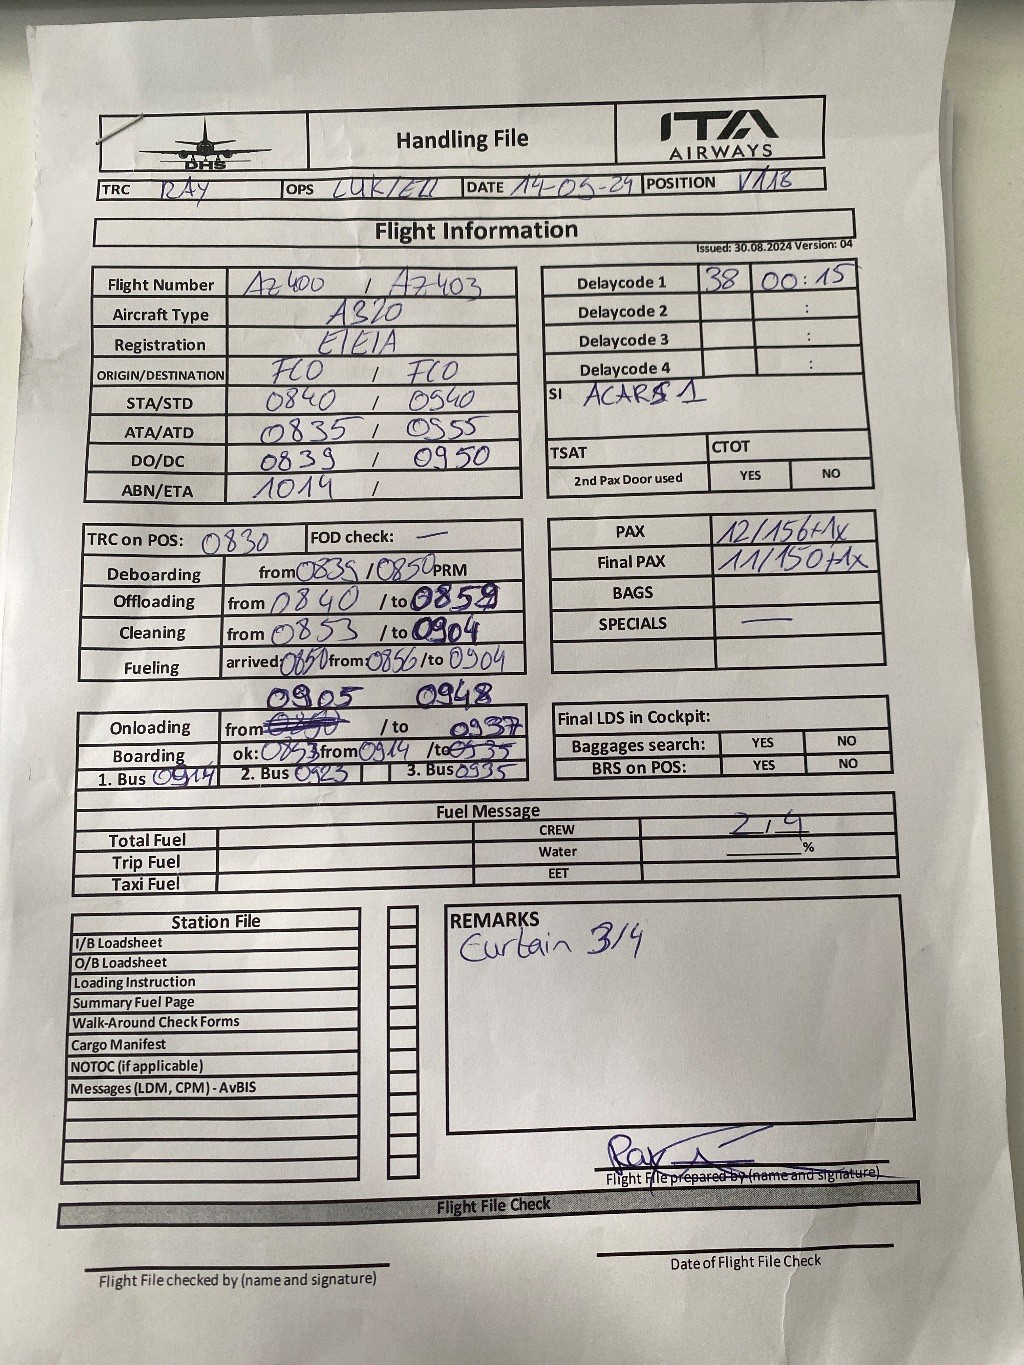 DHS
Handling File
ITA
AIRWAYS
TRC RAY OPS DATE 14-05-24 POSITION V118
Flight Information
Issued: 30.08.2024 Version: 04
Flight Number AZ400 / AZ403
Aircraft Type A320
Registration EIEIA
ORIGIN/DESTINATION FCO / FCO
STA/STD 0840 / 0940
ATA/ATD 0835 / 0955
DO/DC 0839 / 0950
ABN/ETA 1014 /
Delaycode 1 38 00:15
Delaycode 2 :
Delaycode 3 :
Delaycode 4 :
SI ACARS 1
TSAT CTOT
2nd Pax Door used YES NO
TRC on POS: 0830 FOD check: —
Deboarding from 0839 / 0850 PRM
Offloading from 0840 / to 0859
Cleaning from 0853 / to 0904
Fueling arrived: 0850 from: 0856 / to 0904
PAX 12/156+1x
Final PAX 11/150+1x
BAGS
SPECIALS —
0905 0948
Onloading from / to 0937
Boarding ok: 0853 from 0914 / to 0935
1. Bus 0914 2. Bus 0923 3. Bus 0935
Final LDS in Cockpit:
Baggages search: YES NO
BRS on POS: YES NO
Fuel Message
Total Fuel CREW 2 / 4
Trip Fuel Water ______%
Taxi Fuel EET
Station File
I/B Loadsheet
O/B Loadsheet
Loading Instruction
Summary Fuel Page
Walk-Around Check Forms
Cargo Manifest
NOTOC (if applicable)
Messages (LDM, CPM) - AvBIS
REMARKS
Curtain 3/4
Ray
Flight File prepared by (name and signature)
Flight File Check
Flight File checked by (name and signature)
Date of Flight File Check